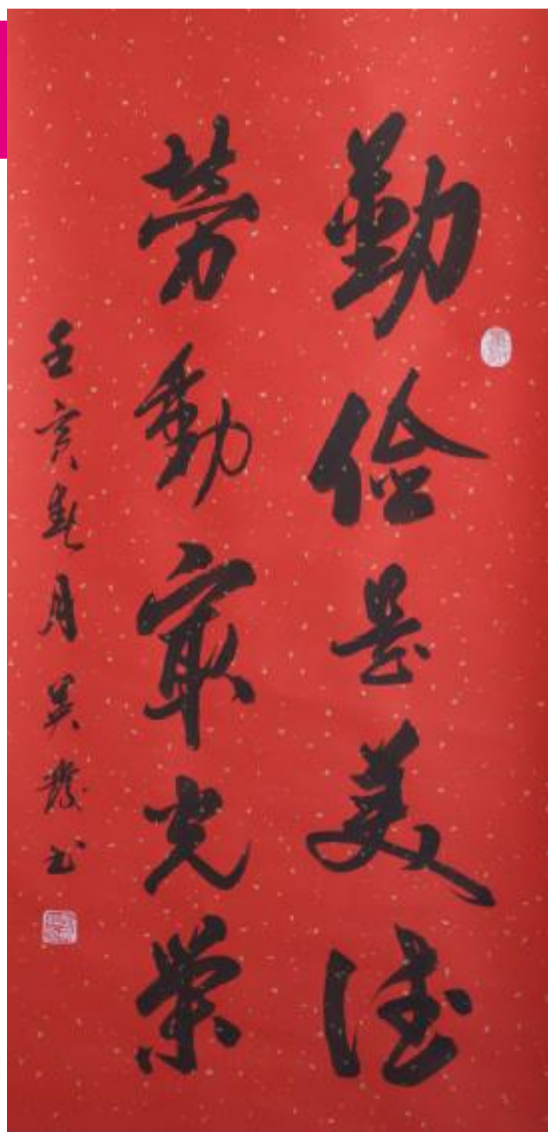 勤俭是美德
劳動最光荣
壬寅春月吴发书